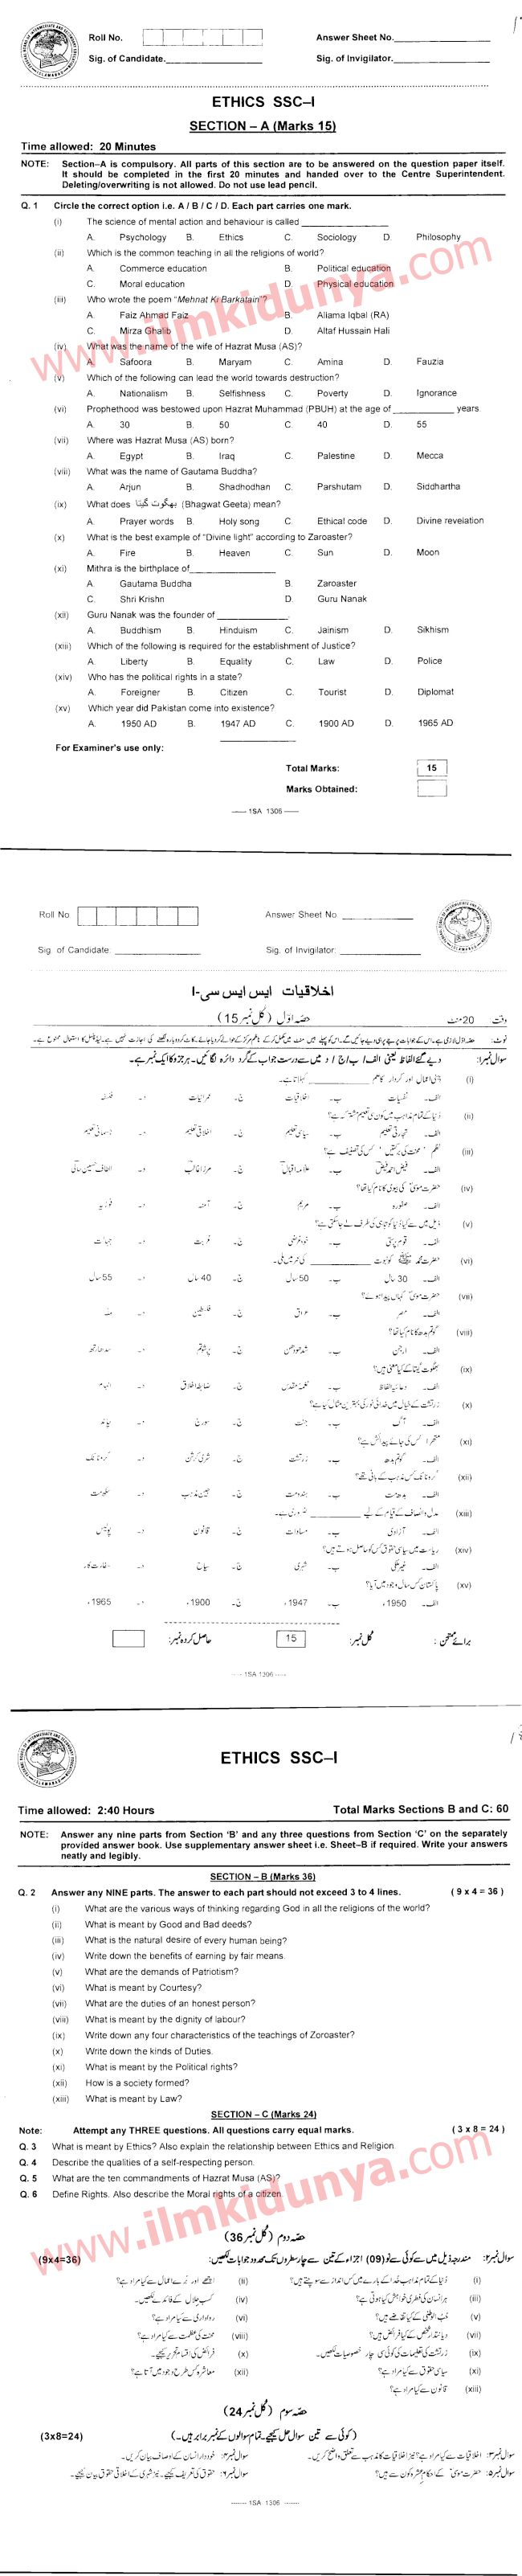 Roll No.
Answer Sheet No.
Sig. of Candidate.
Sig. of Invigilator.
ETHICS SSC–I
SECTION – A (Marks 15)
Time allowed: 20 Minutes
NOTE: Section–A is compulsory. All parts of this section are to be answered on the question paper itself.
It should be completed in the first 20 minutes and handed over to the Centre Superintendent.
Deleting/overwriting is not allowed. Do not use lead pencil.
Q. 1 Circle the correct option i.e. A / B / C / D. Each part carries one mark.
(i) The science of mental action and behaviour is called ____________
A. Psychology B. Ethics C. Sociology D. Philosophy
(ii) Which is the common teaching in all the religions of world?
A. Commerce education B. Political education
C. Moral education D. Physical education
(iii) Who wrote the poem "Mehnat Ki Barkatain"?
A. Faiz Ahmad Faiz B. Allama Iqbal (RA)
C. Mirza Ghalib D. Altaf Hussain Hali
(iv) What was the name of the wife of Hazrat Musa (AS)?
A. Safoora B. Maryam C. Amina D. Fauzia
(v) Which of the following can lead the world towards destruction?
A. Nationalism B. Selfishness C. Poverty D. Ignorance
(vi) Prophethood was bestowed upon Hazrat Muhammad (PBUH) at the age of ____________ years.
A. 30 B. 50 C. 40 D. 55
(vii) Where was Hazrat Musa (AS) born?
A. Egypt B. Iraq C. Palestine D. Mecca
(viii) What was the name of Gautama Buddha?
A. Arjun B. Shadhodhan C. Parshutam D. Siddhartha
(ix) What does بھگوت گیتا (Bhagwat Geeta) mean?
A. Prayer words B. Holy song C. Ethical code D. Divine revelation
(x) What is the best example of "Divine light" according to Zaroaster?
A. Fire B. Heaven C. Sun D. Moon
(xi) Mithra is the birthplace of____________
A. Gautama Buddha B. Zaroaster
C. Shri Krishn D. Guru Nanak
(xii) Guru Nanak was the founder of ____________.
A. Buddhism B. Hinduism C. Jainism D. Sikhism
(xiii) Which of the following is required for the establishment of Justice?
A. Liberty B. Equality C. Law D. Police
(xiv) Who has the political rights in a state?
A. Foreigner B. Citizen C. Tourist D. Diplomat
(xv) Which year did Pakistan come into existence?
A. 1950 AD B. 1947 AD C. 1900 AD D. 1965 AD
For Examiner's use only:
Total Marks: 15
Marks Obtained:
–— 1SA 1306 –—
Roll No
Answer Sheet No
Sig. of Candidate
Sig. of Invigilator:
اخلاقیات ایس ایس سی-I
حصہ اوّل (کُل نمبر 15)
وقت 20 منٹ
سوال نمبر۱: دیے گئے الفاظ یعنی الف/ب/ج/د میں سے درست جواب کے گرد دائرہ لگائیں۔ ہر جزو کا ایک نمبر ہے۔
(i) ذہنی اعمال اور کردار کا علم ____________ کہلاتا ہے۔
الف۔ نفسیات ب۔ اخلاقیات ج۔ عمرانیات د۔ فلسفہ
(ii) دُنیا کے تمام مذاہب میں کون سی تعلیم مشترک ہے؟
الف۔ تجارتی تعلیم ب۔ سیاسی تعلیم ج۔ اخلاقی تعلیم د۔ جسمانی تعلیم
(iii) نظم "محنت کی برکتیں" کس کی تصنیف ہے؟
الف۔ فیض احمد فیض ب۔ علامہ اقبالؒ ج۔ مرزا غالب د۔ الطاف حسین حالی
(iv) حضرت موسیٰؑ کی بیوی کا نام کیا تھا؟
الف۔ صفورہ ب۔ مریم ج۔ آمنہ د۔ فوزیہ
(v) ذیل میں سے کیا دُنیا کو تباہی کی طرف لے جا سکتی ہے؟
الف۔ قوم پرستی ب۔ خود غرضی ج۔ غربت د۔ جہالت
(vi) حضرت محمد ﷺ کو نبوت ____________ کی عمر میں ملی۔
الف۔ 30 سال ب۔ 50 سال ج۔ 40 سال د۔ 55 سال
(vii) حضرت موسیٰؑ کہاں پیدا ہوئے؟
الف۔ مصر ب۔ عراق ج۔ فلسطین د۔ مکہ
(viii) گوتم بدھ کا نام کیا تھا؟
الف۔ ارجن ب۔ شدھودھن ج۔ پرشوتم د۔ سدھارتھ
(ix) بھگوت گیتا کے کیا معنی ہیں؟
الف۔ دعائیہ الفاظ ب۔ نغمۂ مقدس ج۔ ضابطۂ اخلاق د۔ الہام
(x) زرتشت کے خیال میں خدائی نور کی بہترین مثال کیا ہے؟
الف۔ آگ ب۔ جنت ج۔ سورج د۔ چاند
(xi) متھرا کس کی جائے پیدائش ہے؟
الف۔ گوتم بدھ ب۔ زرتشت ج۔ شری کرشن د۔ گرو نانک
(xii) گرو نانک کس مذہب کے بانی تھے؟
الف۔ بدھ مت ب۔ ہندومت ج۔ جین مذہب د۔ سکھ مت
(xiii) عدل و انصاف کے قیام کے لیے ____________ ضروری ہے۔
الف۔ آزادی ب۔ مساوات ج۔ قانون د۔ پولیس
(xiv) ریاست میں سیاسی حقوق کس کو حاصل ہوتے ہیں؟
الف۔ غیر ملکی ب۔ شہری ج۔ سیاح د۔ سفارت کار
(xv) پاکستان کس سال وجود میں آیا؟
الف۔ 1950ء ب۔ 1947ء ج۔ 1900ء د۔ 1965ء
برائے ممتحن: کُل نمبر: 15 حاصل کردہ نمبر:
–— 1SA 1306 –—
ETHICS SSC–I
Time allowed: 2:40 Hours
Total Marks Sections B and C: 60
NOTE: Answer any nine parts from Section 'B' and any three questions from Section 'C' on the separately
provided answer book. Use supplementary answer sheet i.e. Sheet–B if required. Write your answers
neatly and legibly.
SECTION – B (Marks 36)
Q. 2 Answer any NINE parts. The answer to each part should not exceed 3 to 4 lines. ( 9 x 4 = 36 )
(i) What are the various ways of thinking regarding God in all the religions of the world?
(ii) What is meant by Good and Bad deeds?
(iii) What is the natural desire of every human being?
(iv) Write down the benefits of earning by fair means.
(v) What are the demands of Patriotism?
(vi) What is meant by Courtesy?
(vii) What are the duties of an honest person?
(viii) What is meant by the dignity of labour?
(ix) Write down any four characteristics of the teachings of Zoroaster?
(x) Write down the kinds of Duties.
(xi) What is meant by the Political rights?
(xii) How is a society formed?
(xiii) What is meant by Law?
SECTION – C (Marks 24)
Note: Attempt any THREE questions. All questions carry equal marks. ( 3 x 8 = 24 )
Q. 3 What is meant by Ethics? Also explain the relationship between Ethics and Religion.
Q. 4 Describe the qualities of a self-respecting person.
Q. 5 What are the ten commandments of Hazrat Musa (AS)?
Q. 6 Define Rights. Also describe the Moral rights of a citizen.
حصہ دوم (کُل نمبر 36)
سوال نمبر۲: مندرجہ ذیل میں سے کوئی سے نو (09) اجزاء کے تین سے چار سطروں تک محدود جوابات لکھیں: (9x4=36)
(i) دُنیا کے تمام مذاہب خُدا کے بارے میں کس انداز سے سوچتے ہیں؟ (ii) اچھے اور بُرے اعمال سے کیا مراد ہے؟
(iii) ہر انسان کی فطری خواہش کیا ہوتی ہے؟ (iv) کسبِ حلال کے فائدے لکھیں۔
(v) حُب الوطنی کے کیا تقاضے ہیں؟ (vi) رواداری سے کیا مراد ہے؟
(vii) دیانتدار شخص کے کیا فرائض ہیں؟ (viii) محنت کی عظمت سے کیا مراد ہے؟
(ix) زرتشت کی تعلیمات کی کوئی سی چار خصوصیات لکھیں۔ (x) فرائض کی اقسام تحریر کیجیے۔
(xi) سیاسی حقوق سے کیا مراد ہے؟ (xii) معاشرہ کس طرح وجود میں آتا ہے؟
(xiii) قانون سے کیا مراد ہے؟
حصہ سوم (کُل نمبر 24)
(کوئی سے تین سوال حل کیجیے۔ تمام سوالوں کے نمبر برابر ہیں۔) (3x8=24)
سوال نمبر۳: اخلاقیات سے کیا مراد ہے؟ نیز اخلاقیات کا مذہب سے تعلق واضح کریں۔ سوال نمبر۴: خوددار انسان کے اوصاف بیان کریں۔
سوال نمبر۵: حضرت موسیٰؑ کے احکامِ عشرہ کون سے ہیں؟ سوال نمبر۶: حقوق کی تعریف کیجیے۔ نیز شہری کے اخلاقی حقوق بیان کیجیے۔
–— 1SA 1306 –—
www.ilmkidunya.com
www.ilmkidunya.com